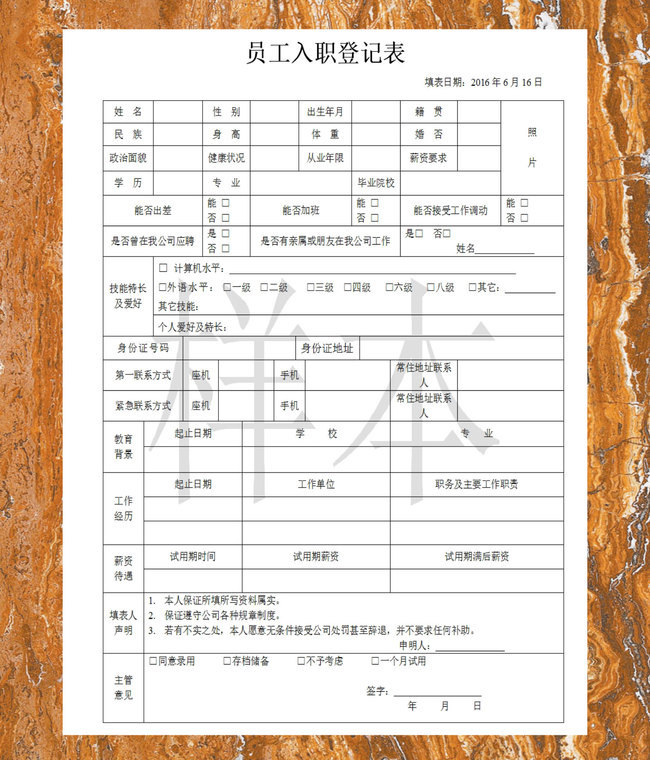 员工入职登记表
填表日期：2016 年 6 月 16 日
姓 名 性 别 出生年月 籍 贯 照片
民 族 身 高 体 重 婚 否
政治面貌 健康状况 从业年限 薪资要求
学 历 专 业 毕业院校
能否出差 能 □ 否 □ 能否加班 能 □ 否 □ 能否接受工作调动 能 □ 否 □
是否曾在我公司应聘 是 □ 否 □ 是否有亲属或朋友在我公司工作 是□ 否□
姓名____________
技能特长及爱好
□ 计算机水平：____________
□外语水平： □一级 □二级 □三级 □四级 □六级 □八级 □其它：__________
其它技能：
个人爱好及特长：
身份证号码 身份证地址
第一联系方式 座机 手机 常住地址联系人
紧急联系方式 座机 手机 常住地址联系人
教育背景 起止日期 学 校 专 业
工作经历 起止日期 工作单位 职务及主要工作职责
薪资待遇 试用期时间 试用期薪资 试用期满后薪资
填表人声明
1. 本人保证所填所写资料属实。
2. 保证遵守公司各种规章制度。
3. 若有不实之处，本人愿意无条件接受公司处罚甚至辞退，并不要求任何补助。
申明人：______________
主管意见
□同意录用 □存档储备 □不予考虑 □一个月试用
签字：__________________
年 月 日
样本